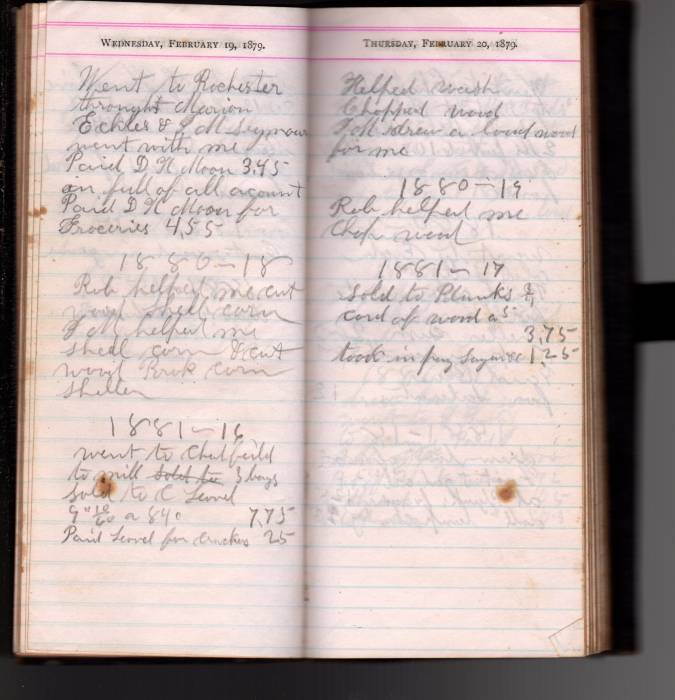 WEDNESDAY, FEBRUARY 19, 1879.
Went to Rochester
throught Marion
Eckles & J M Seymour
went with me
Paid D N Moon 3,45
in full of all account
Paid D N Moon for
Groceries 4,55
1880-18
Rob helped me cut
wood shell corn
J M helped me
shell corn & cut
wood Brok corn
sheller
1881-16
went to Chatfeild
to mill sold for 3 bags
sold to C
7,75
Paid for crackers 25
THURSDAY, FEBRUARY 20, 1879.
Helped wash
Chopped wood
J M drew a load wood
for me
1880-19
Rob helped me
chop wood
1881-17
Sold to Planks
cord of wood a 5
3,75
took in pay Sugar &c 1,25